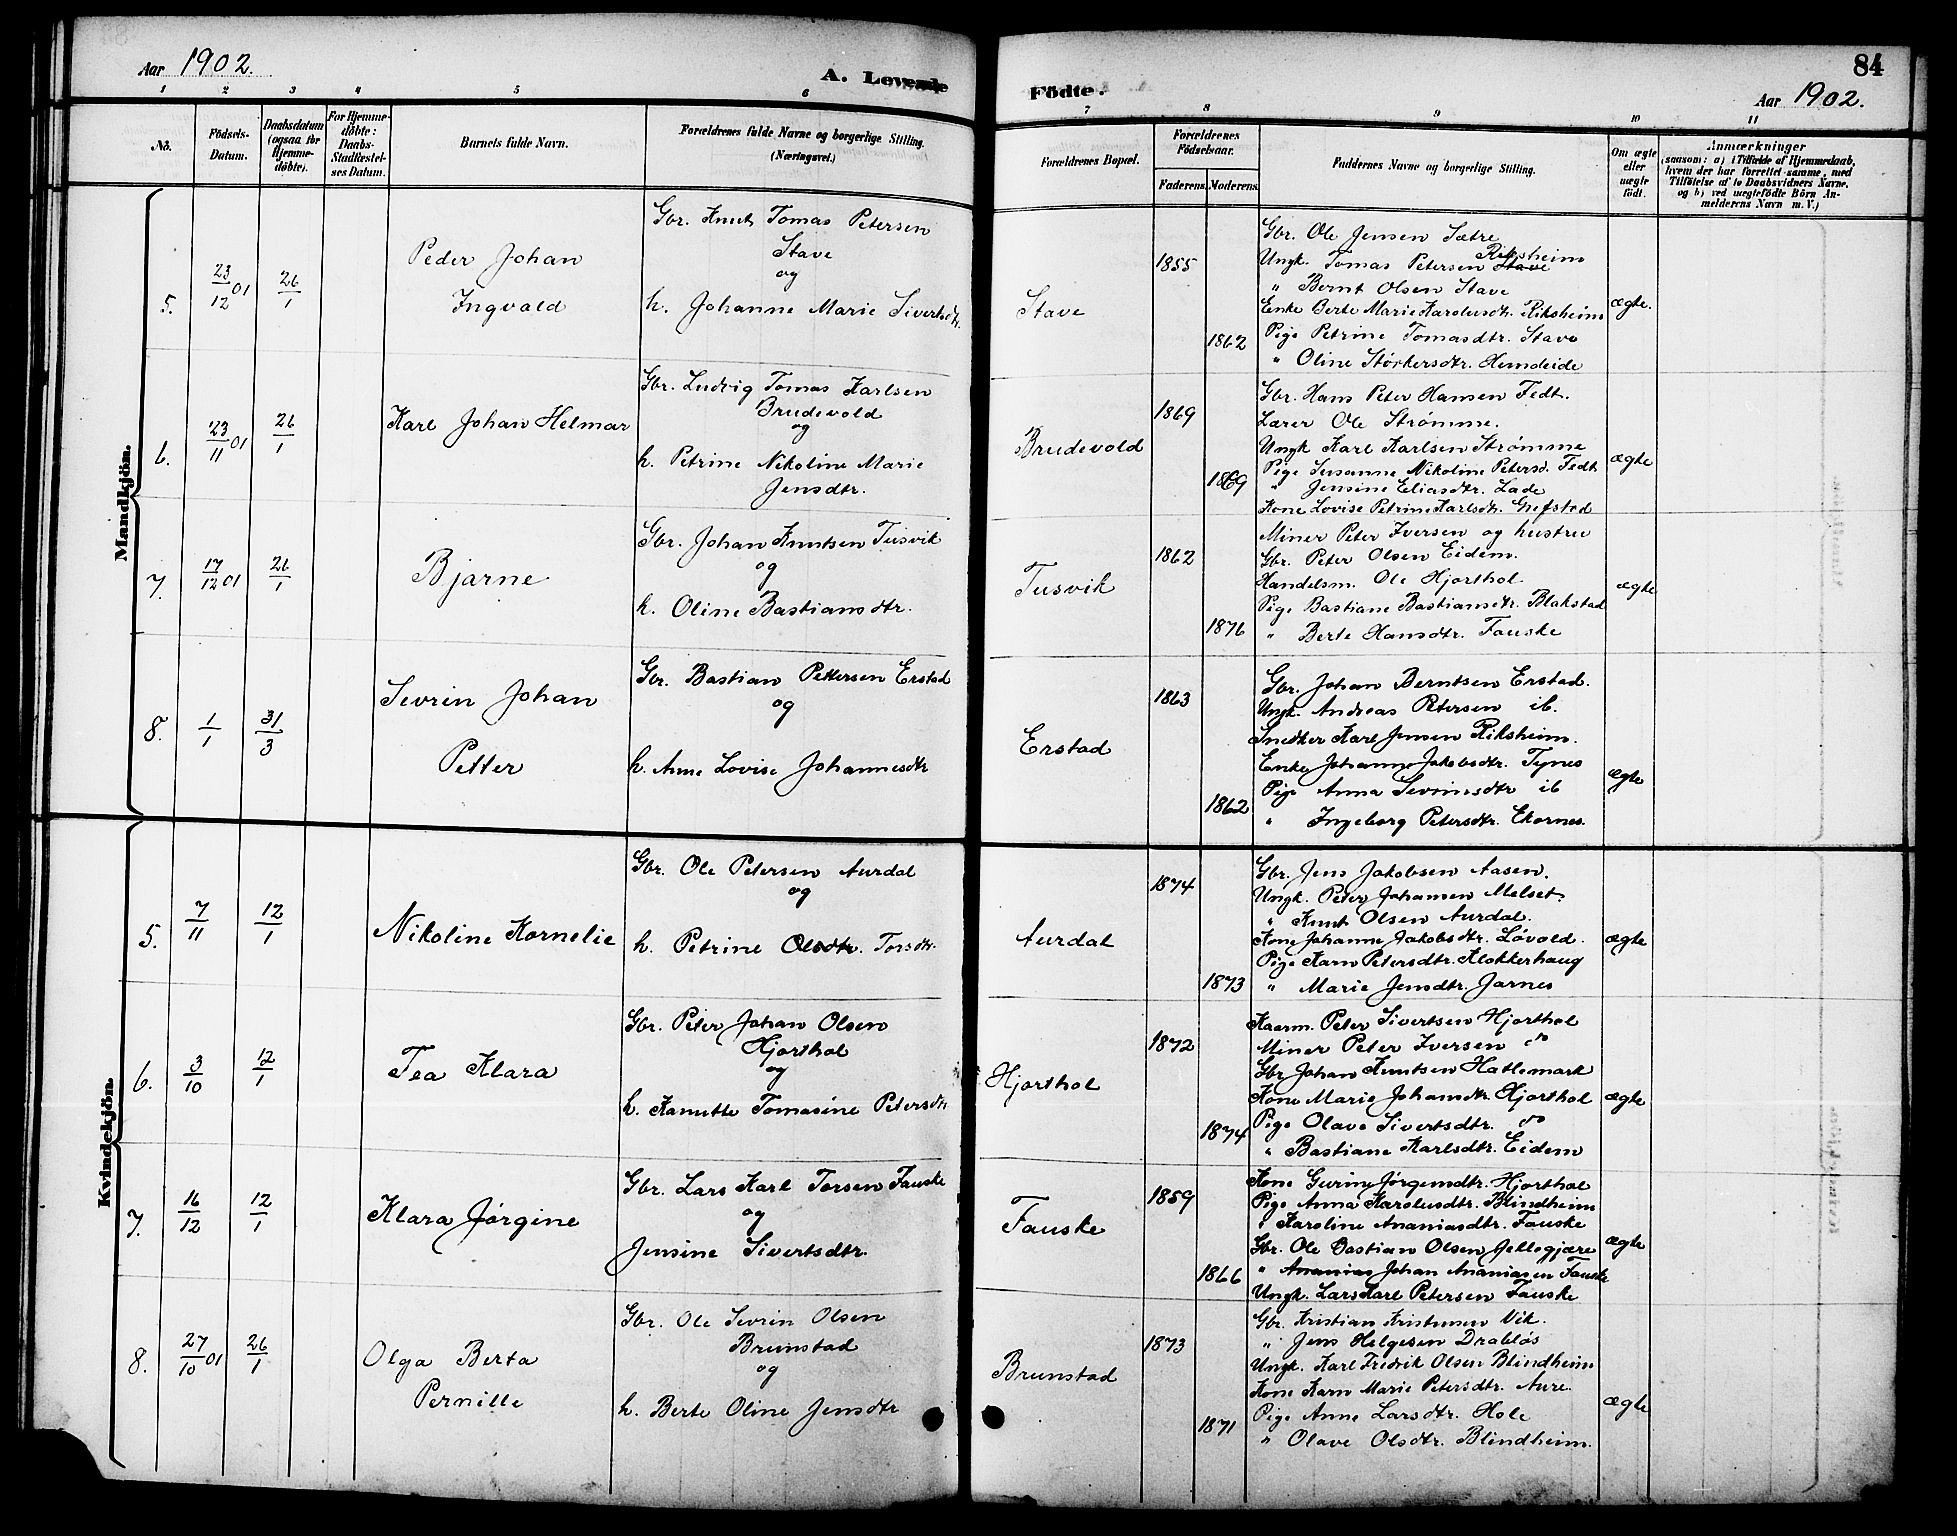 Aar 1902.
A. Levende
1 2 3 4 5 6
No.
Födsels-
Datum.
Daabsdatum
(ogsaa for
Hjemme-
døbte).
For Hjemme-
døbte:
Daabs-
Stadfæstel-
ses Datum.
Barnets fulde Navn.
Forældrenes fulde Navne og borgerlige Stilling.
(Næringsvei.)
Mandkjön.
5. 23/12 01 26/1
Peder Johan
Ingvald
Gbr. Knut Tomas Petersen
Stave
og
h. Johanne Marie Sivertsdtr.
6. 23/11 01 26/1
Karl Johan Helmar
Gbr. Ludvig Tomas Karlsen
Brudevold
og
h. Petrine Nikoline Marie
Jensdtr.
7. 17/12 01 26/1
Bjarne
Gbr. Johan Knutsen Tusvik
og
h. Oline Bastiansdtr.
8. 1/1 31/3
Sevrin Johan
Petter
Gbr. Bastian Pettersen Erstad
og
h. Anne Lovise Johannesdtr
Kvindekjön.
5. 7/11 12/1
Nikoline Kornelie
Gbr. Ole Petersen Aurdal
og
h. Petrine Olsdtr. Torsdtr.
6. 3/10 12/1
Tea Klara
Gbr. Peter Johan Olsen
Hjorthol
og
h. Kanutte Tomasine Petersdtr
7. 16/12 12/1
Klara Jørgine
Gbr. Lars Karl Torsen Fauske
og
Jensine Sivertsdtr.
8. 27/10 01 26/1
Olga Berta
Pernille
Gbr. Ole Sevrin Olsen
Brunstad
og
h. Berte Oline Jensdtr
84
Födte.
Aar 1902.
7 8 9 10 11
Forældrenes Bopæl.
Forældrenes
Födselsaar.
Faderens. Moderens.
Faddernes Navne og borgerlige Stilling.
Om ægte
eller
uægte
født.
Anmærkninger
(saasom: a) i Tilfælde af Hjemmedaab,
hvem der har forrettet samme, med
Tilföielse af to Daabsvidners Navne,
og b) ved uægtefödte Börn An-
melderens Navn m. V.)
Stave 1855 1862 ægte.
Gbr. Ole Jensen Sætre
Riksheim
Ungk. Tomas Petersen Stave
" Bernt Olsen Stave
Enke Berte Marie Karolusdtr. Riksheim
Pige Petrine Tomasdtr. Stave
" Oline Størkersdtr. Hundeide
Brudevold 1869 1869 ægte
Gbr. Hans Peter Hansen Fedt.
Lærer Ole Strømme.
Ungk Karl Karlsen Strømme
Pige Susanne Nikoline Petersd. Fedt
" Jensine Eliasdtr. Lade
Kone Lovise Petrine Karlsdtr. Grefstad
Tusvik 1862 1876 ægte
Miner Peter Iversen og hustru
Gbr. Peter Olsen Eidem.
Handelsm. Ole Hjorthol
Pige Bastiane Bastiansdtr. Blakstad
" Berte Hansdtr. Fauske
Erstad 1863 1862 ægte
Gbr. Johan Berntsen Erstad.
Ungk. Andreas Petersen ib.
Snedker Karl Jensen Riksheim.
Enke Johanne Jakobsdtr. Tynes
Pige Anna Sevrinsdtr ib
" Ingeborg Petersdtr. Ekornes.
Aurdal 1874 1873 ægte
Gbr. Jens Jakobsen Aasen.
Ungk. Peter Johansen Melset.
" Knut Olsen Aurdal.
Kone Johanne Jakobsdtr. Løvold.
Pige Karn Petersdtr. Klokkerhaug
" Marie Jensdtr. Jarnes
Hjorthol 1872 1874 ægte
Kaarm. Peter Sivertsen Hjorthol
Miner Peter Iversen do
Gbr Johan Knutsen Hatlemark
Kone Marie Johansdtr Hjorthol
Pige Olave Sivertsdtr. do
" Bastiane Karlsdtr. Eidem
Fauske 1859 1866 ægte
Kone Gurine Jørgensdtr. Hjorthol
Pige Anna Karolusdtr. Blindheim
" Karoline Ananiasdtr. Fauske
Gbr. Ole Bastian Olsen Jellegjære
" Ananias Johan Ananiasen Fauske
Ungk. Lars Karl Petersen Fauske
Brunstad 1873 1871 ægte
Gbr. Kristian Kristensen Vik.
" Jens Helgesen Drabløs
Ungk. Karl Fredrik Olsen Blindheim
Kone Karn Marie Petersdtr. Aure.
Pige Anne Larsdtr. Hole
" Olave Olsdtr. Blindheim.